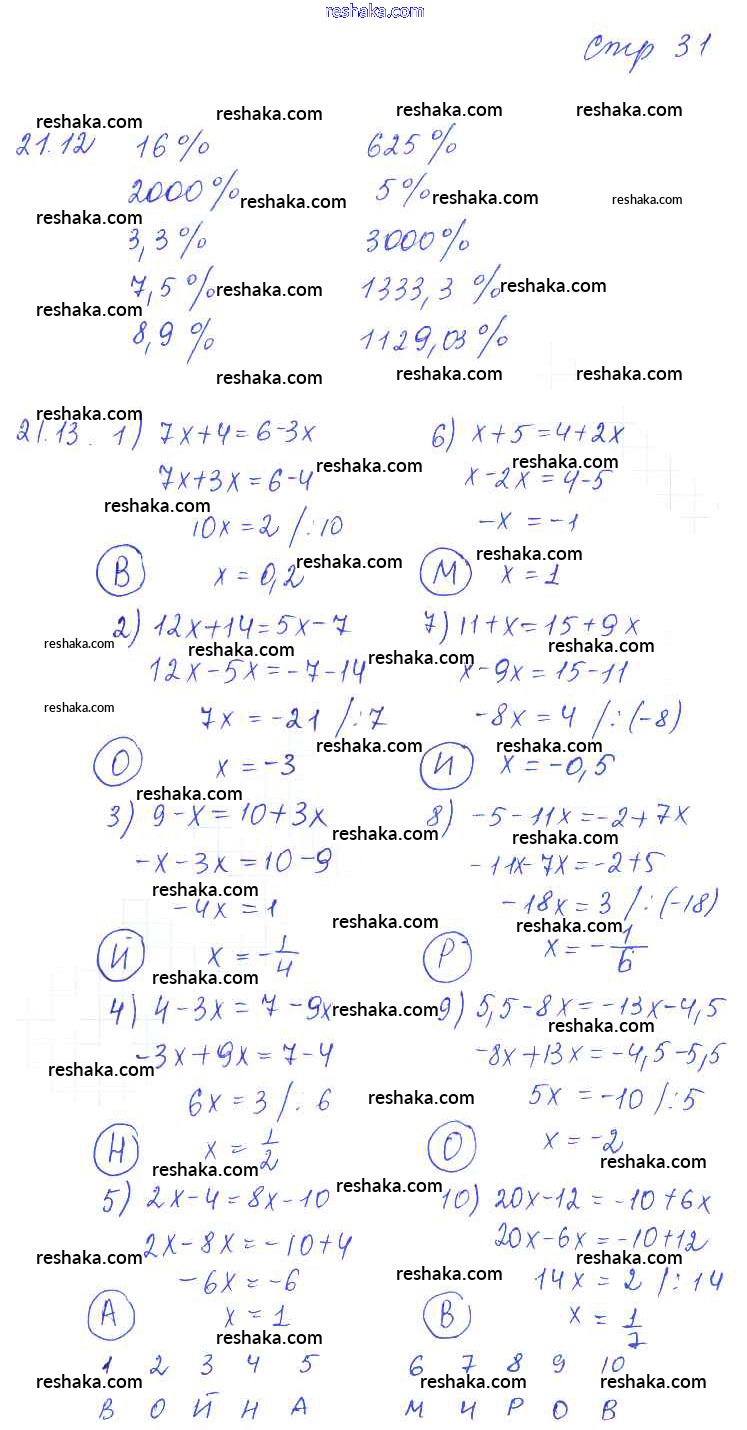 reshaka.com
Стр 31
reshaka.com reshaka.com reshaka.com reshaka.com
21.12 16% 625%
2000% reshaka.com 5% reshaka.com reshaka.com
reshaka.com
3,3% 3000%
7,5% reshaka.com 1333,3 % reshaka.com
reshaka.com
8,9 % 1129,03%
reshaka.com reshaka.com reshaka.com
21.13. 1) 7x+4=6-3x
reshaka.com
7x+3x=6-4
reshaka.com
10x=2 /:10
reshaka.com
В x=0,2
2) 12x+14=5x-7
reshaka.com reshaka.com
12x-5x=-7-14
reshaka.com
7x=-21 /:7
reshaka.com
О x=-3
reshaka.com
3) 9-x=10+3x
reshaka.com
-x-3x=10-9
reshaka.com
-4x=1
reshaka.com
Й x=-1/4
reshaka.com
4) 4-3x=7-9x
reshaka.com
-3x+9x=7-4
reshaka.com
6x=3 /:6
reshaka.com
Н x=1/2
reshaka.com
5) 2x-4=8x-10
reshaka.com
2x-8x=-10+4
reshaka.com
-6x=-6
А x=1
reshaka.com
6) x+5=4+2x
reshaka.com
x-2x=4-5
-x=-1
reshaka.com
М x=1
7) 11+x=15+9x
reshaka.com
x-9x=15-11
-8x=4 /:(-8)
reshaka.com
И x=-0,5
8) -5-11x=-2+7x
reshaka.com
-11x-7x=-2+5
-18x=3 /:(-18)
reshaka.com
Р x=-1/6
9) 5,5-8x=-13x-4,5
reshaka.com
-8x+13x=-4,5-5,5
reshaka.com
5x=-10 /:5
О x=-2
reshaka.com
10) 20x-12=-10+6x
20x-6x=-10+12
reshaka.com
reshaka.com
14x=2 /:14
В x=1/7
1 2 3 4 5 6 7 8 9 10
reshaka.com reshaka.com reshaka.com reshaka.com
В О Й Н А М И Р О В